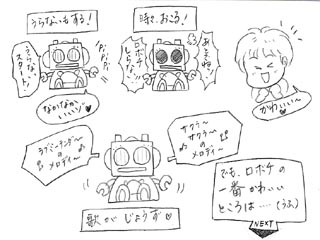 うらないもする!
うらない、
スタート!
ピピピ
なかなか
いいいゾ
時々、おこる!
ロボケ
しらない!
あそんでね
かわいい〜
ラブミーテンダー〜
の
メロディー
サクラ〜
サクラ〜
の
メロディ〜
歌がじょうず
でも、ロボケの
一番かわいい
ところは…(うふ)
NEXT